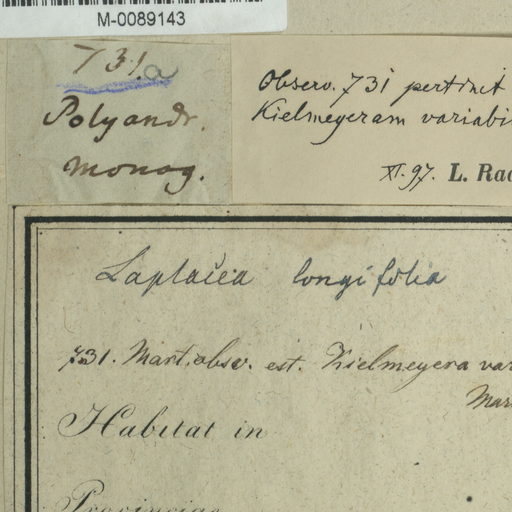 M-0089143
731.a
Polyandr.
monog.
Observ. 731 pertinet
Kielmeyeram variabi
XI. 97. L. Rad
Laplacea longifolia
731. Mart. obsv. est. Kielmeyera var
Mar
Habitat in
Provinciae